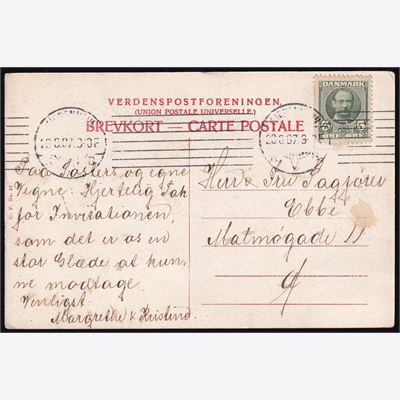 VERDENSPOSTFORENINGEN.
(UNION POSTALE UNIVERSELLE.)
BREVKORT — CARTE POSTALE
DANMARK
5 ØRE 5
23.6.07.
23.6.07.
Paa Søsters og egne
Vegne: Hjertelig Tak
for Invitationen,
som det er os en
stor Glæde at kun-
ne modtage.
Venligst
Margrethe & Kristine.
Herr & Fru Sagfører
Ebbe
Malmøgade 11